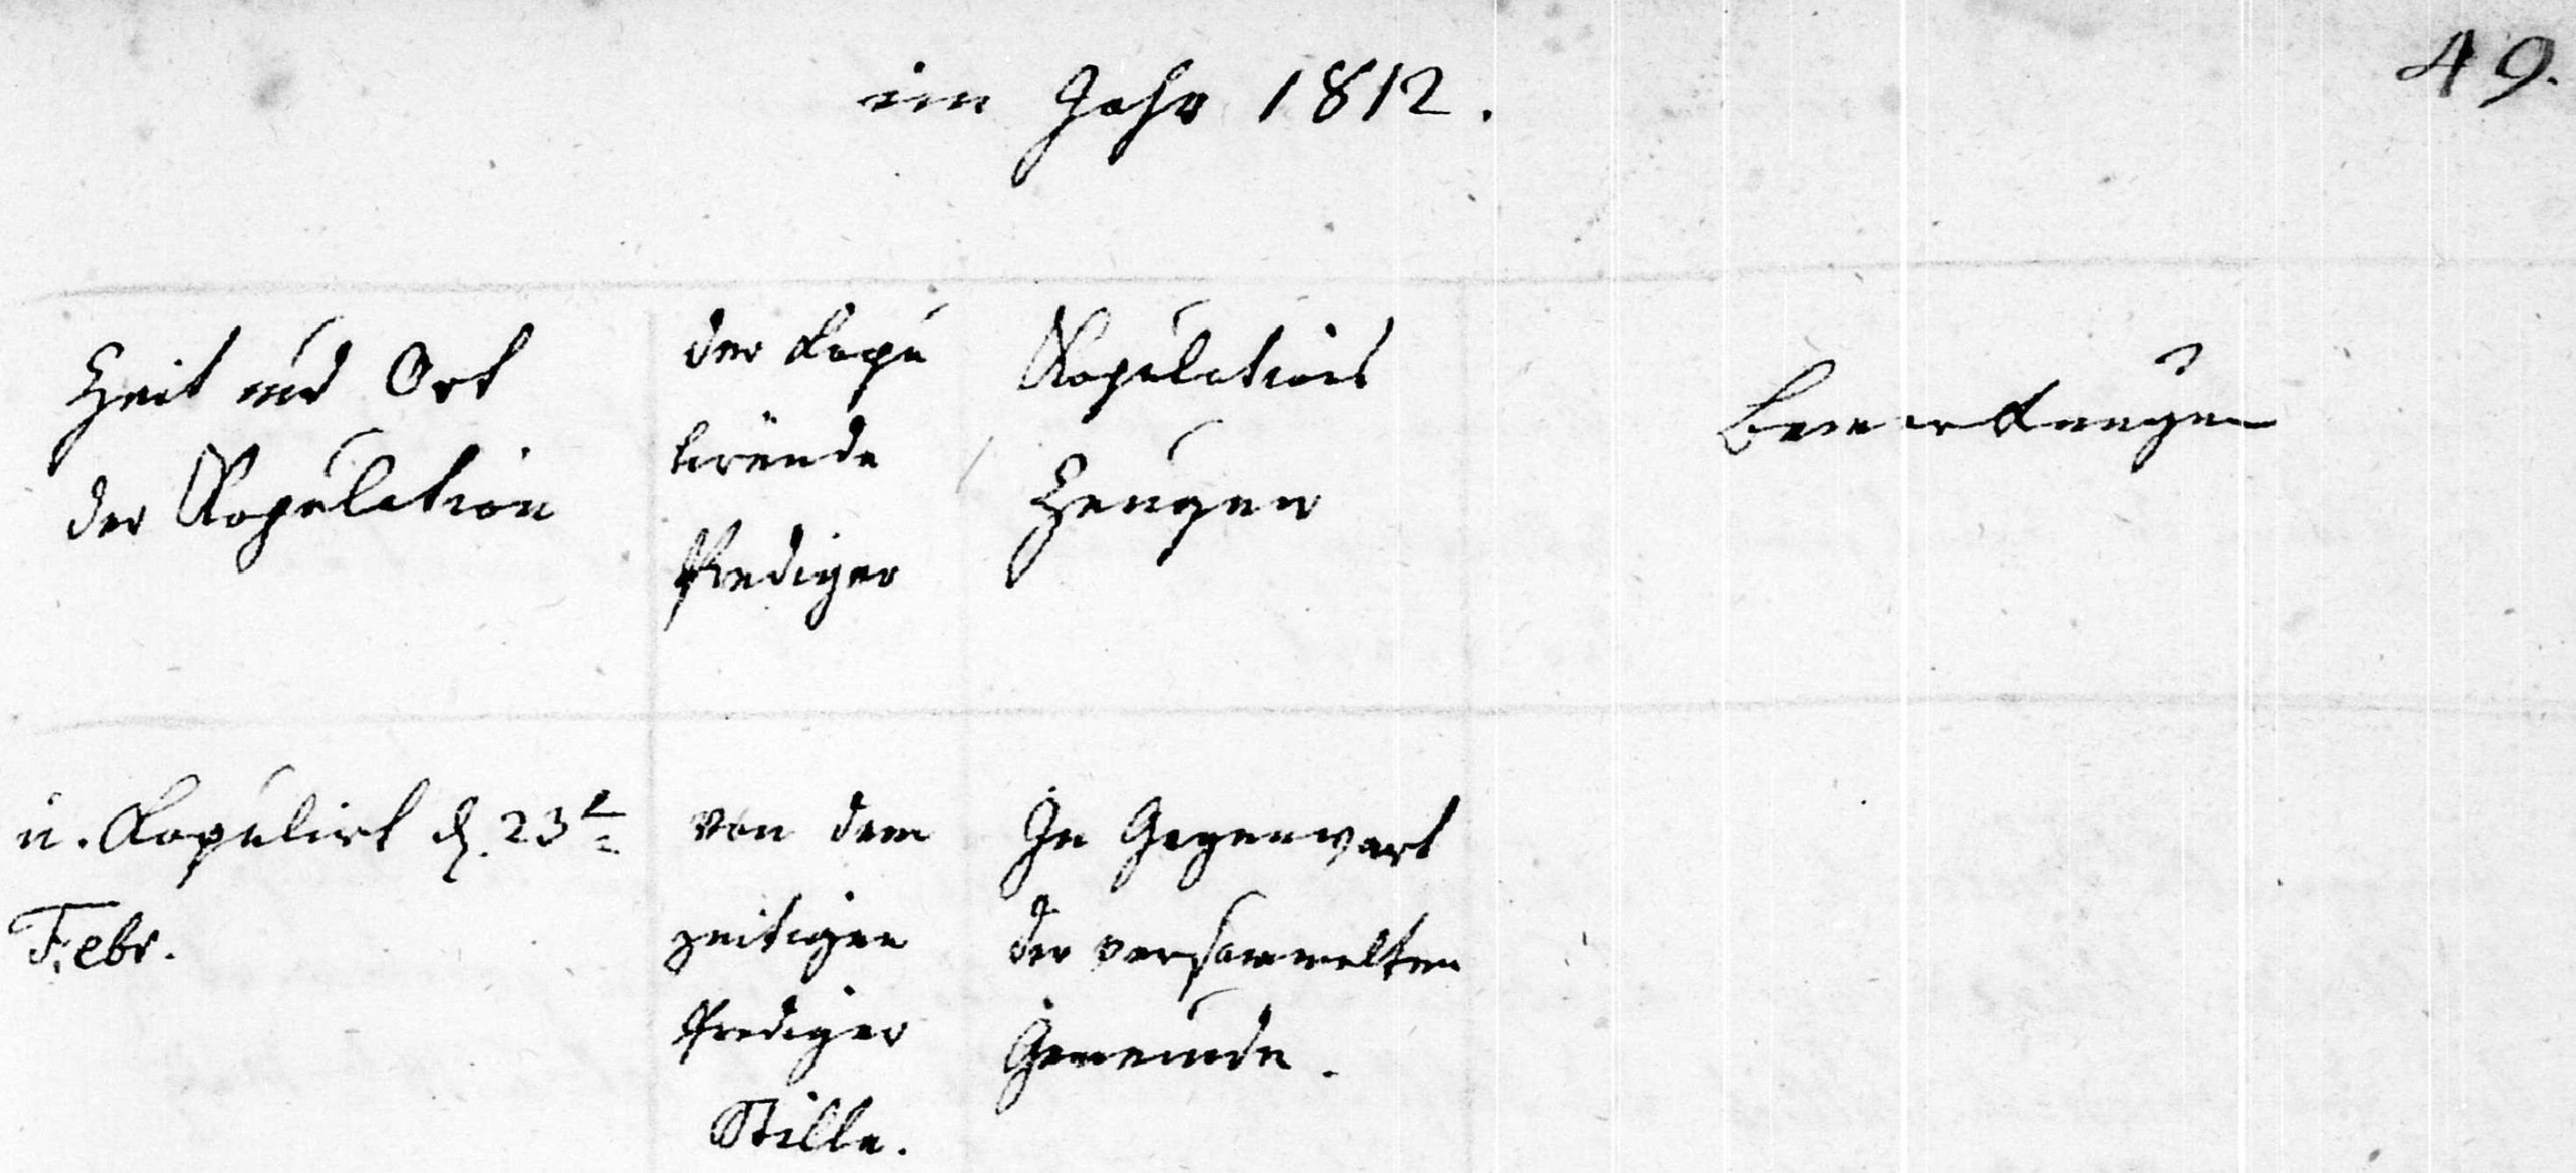 49.
im Jahr 1812.
Zeit und Ort
der Kopulation
der kopu
lirende
Prediger
Kopulations
Zeugen
Bemerkungen
u. kopulirt d. 23t
Febr.
von dem
zeitigen
Prediger
Stille.
In Gegenwart
der versammelten
Gemeinde.